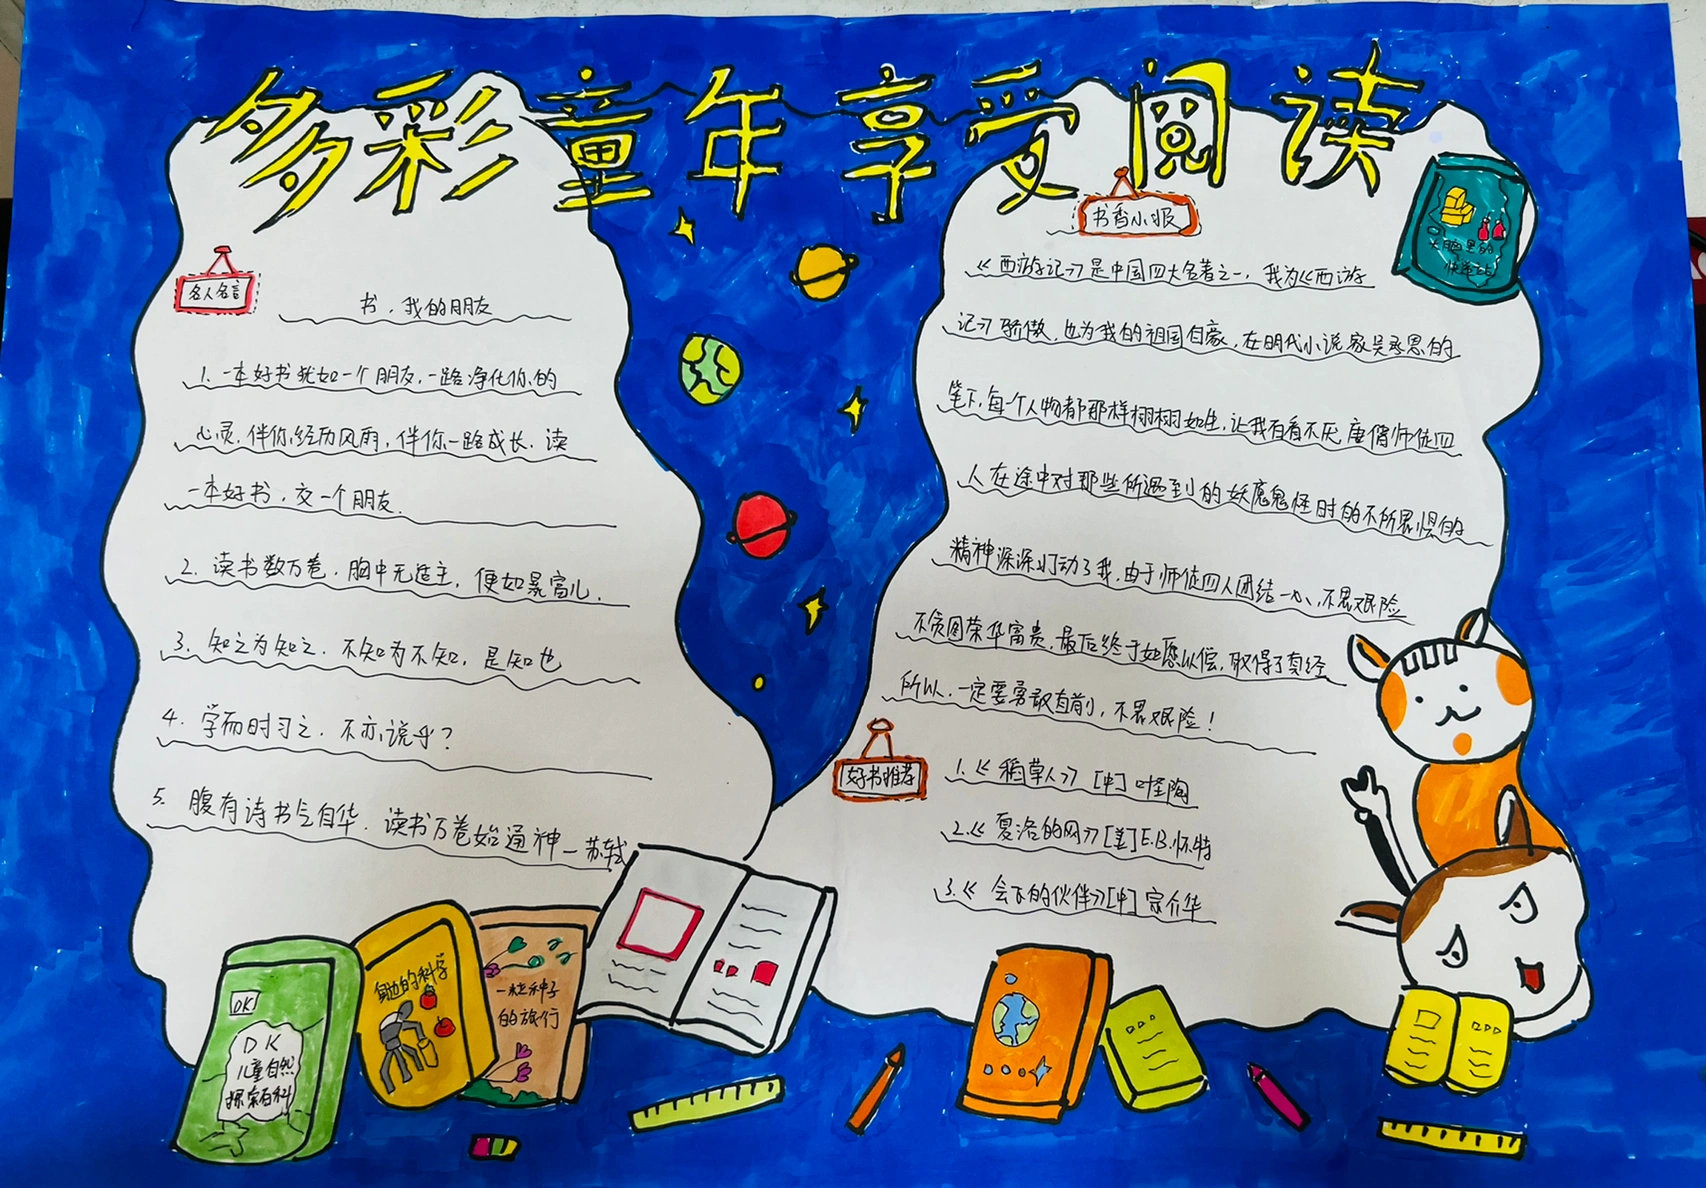 多彩童年享受阅读
名人名言
书，我的朋友
1. 一本好书犹如一个朋友，一路净化你的
心灵，伴你经历风雨，伴你一路成长，读
一本好书，交一个朋友.
2. 读书数万卷，胸中无适主，便如暴富儿.
3. 知之为知之，不知为不知，是知也
4. 学而时习之，不亦说乎？
5. 腹有诗书气自华，读书万卷始通神—苏轼
书香小报
《西游记》是中国四大名著之一，我为《西游
记》骄傲，也为我的祖国自豪，在明代小说家吴承恩的
笔下，每个人物都那样栩栩如生，让我百看不厌，唐僧师徒四
人在途中对那些所遇到的妖魔鬼怪时的不所畏惧的
精神深深打动了我，由于师徒四人团结一心，不畏艰险
不贪图荣华富贵，最后终于如愿以偿，取得了真经
所以，一定要勇敢直前，不畏艰险！
好书推荐
1.《稻草人》[中]叶圣陶
2.《夏洛的网》[美]E.B.怀特
3.《会飞的伙伴》[中]宗介华
大脑里的
快递站
DK
DK
儿童自然
探索百科
身边的科学
一粒种子
的旅行